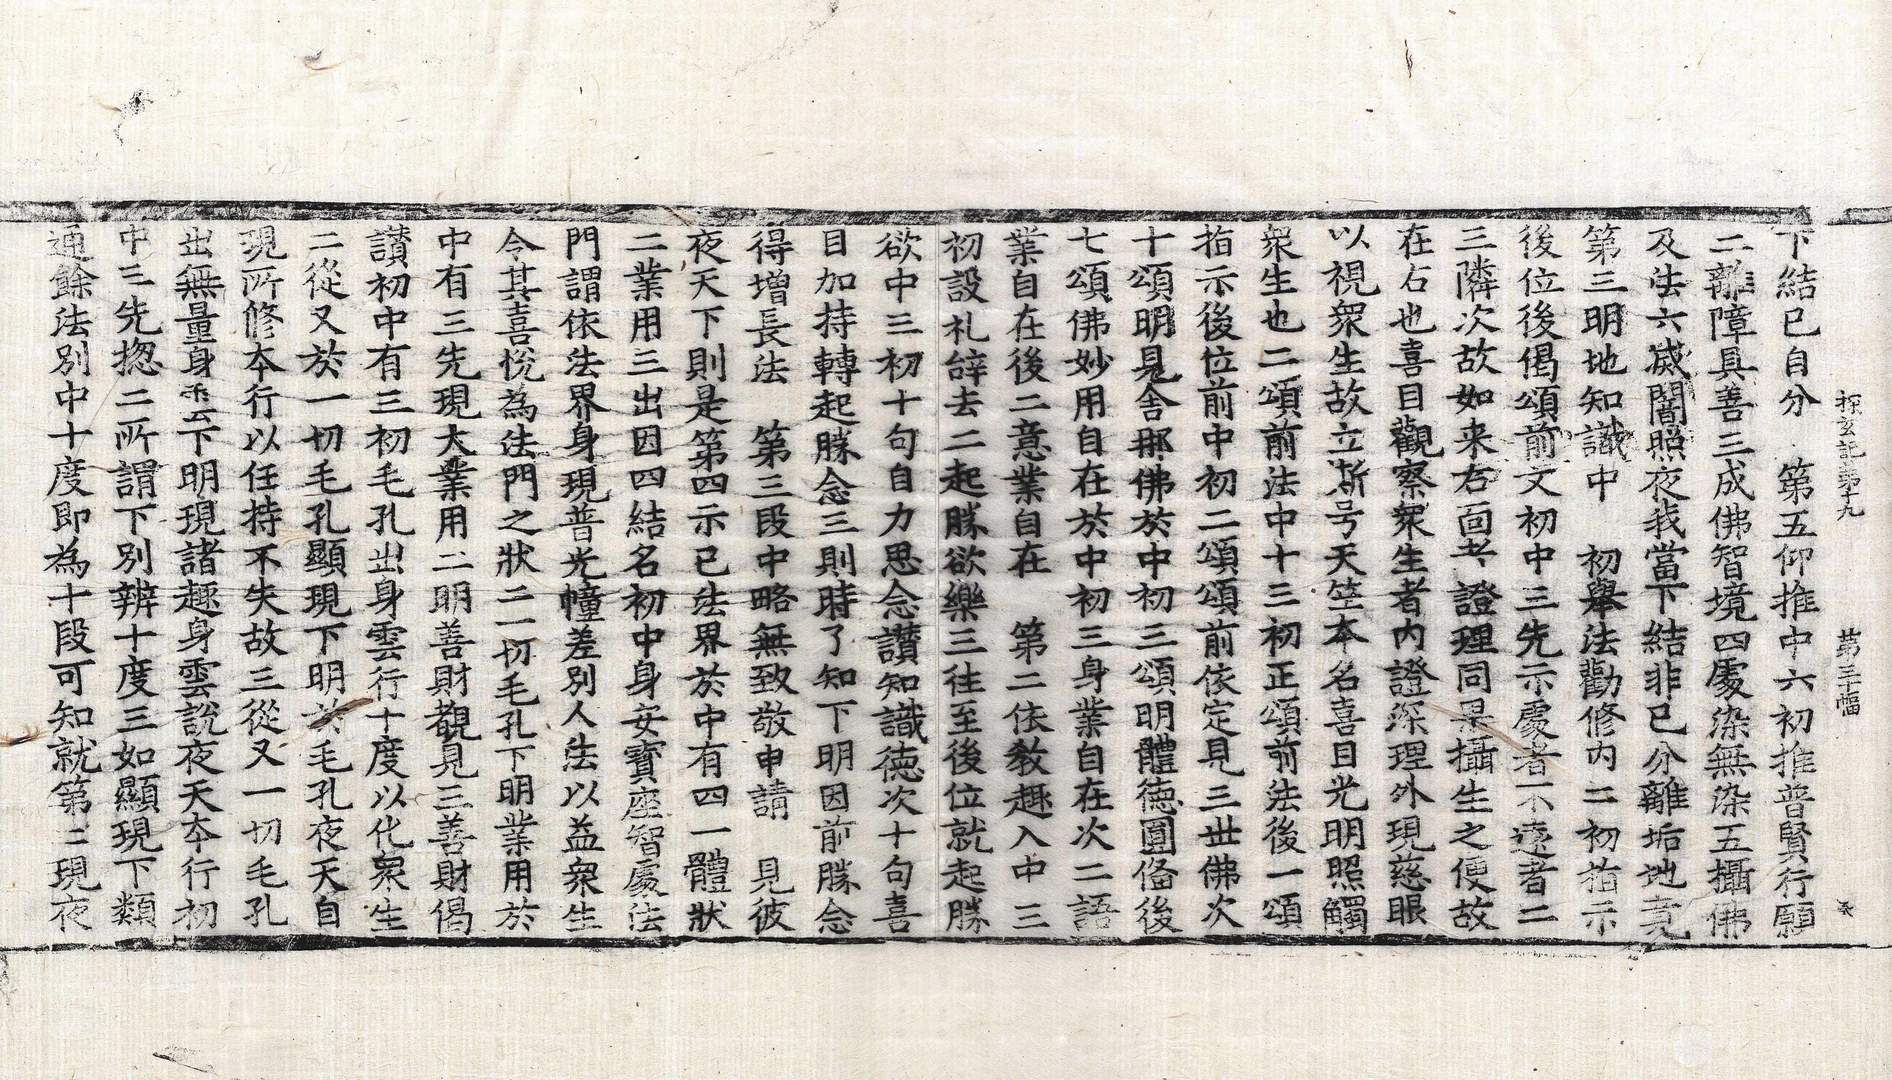 探玄記第十九　第三十幅
下結已自分　第五仰推中六初推普賢行願
二離障具善三成佛智境四處染無染五攝佛
及法六滅闇照夜我當下結非已分離垢地竟
第三明地知識中　初舉法勸修内二初指示
後位後偈頌前文初中三先示處者不遠者二
三隣次故如来右面者證理同是攝生之便故
在右也喜目觀察衆生者内證深理外現慈眼
以視衆生故立斯号天笁本名喜目光明照觸
衆生也二頌前法中十三初正頌前法後一頌
指示後位前中初二頌頌前依定見三世佛次
十頌明見舍那佛於中初三頌明體德圓備後
七頌佛妙用自在於中初三身業自在次二語
業自在後二意業自在　第二依教趣入中三
初設礼辝去二起勝欲樂三往至後位就起勝
欲中三初十句自力思念讃知識德次十句喜
目加持轉起勝念三則時了知下明因前勝念
得增長法　第三段中略無致敬申請　見彼
夜天下則是第四示已法界於中有四一體狀
二業用三出因四結名初中身安寶座智處法
門謂依法界身現普光幢差別人法以益衆生
令其喜悅為法門之狀二一切毛孔下明業用於
中有三先現大業用二明善財覩見三善財偈
讃初中有三初毛孔出身雲行十度以化衆生
二從又於一切毛孔顯現下明於毛孔夜天自
現所修夲行以任持不失故三從又一切毛孔
出無量身雲下明現諸趣身雲說夜天夲行初
中三先揔二所謂下別辨十度三如顯現下類
通餘法別中十度即為十段可知就第二現夜